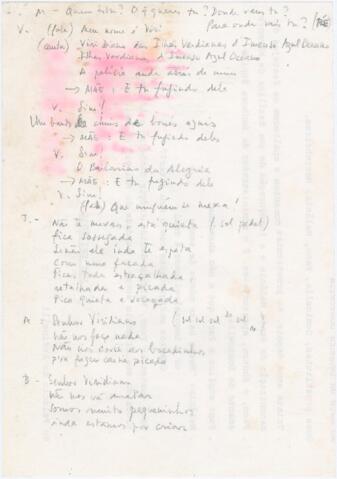 M - Quem és tu? O q̃ queres tu? Donde vens tu?
Para onde vais tu?
V. (fala) Meu nome é Visi
(canta) Visidiano das Ilhas Verdianas d'Imenso Azul Oceano
Ilhas Verdianas d'Imenso Azul Oceano
A polícia anda atrás de mim
→ MÃE: E tu fugindo dela
V. Sim!
Um bando de bonés azuis
→ MÃE: E tu fugindo dele
V. Sim!
O da Alegria
→ MÃE: E tu fugindo dele
V. Sim!
(fala) Que ninguém se mexa!
J. - Não te mexas, está quieta
fica sossegada
Senão ele inda te espeta
Com uma facada
Ficas toda estraçalhada,
retalhada e picada
Fica quieta e sossegada
A - Senhor Visidiano (sol sol sol
não nos faça nada
Não nos corte aos bocadinhos
p'ra fazer carne picada
B - Senhor Visidiano
Não nos vá matar
Somos muito pequeninhos
inda estamos por criar